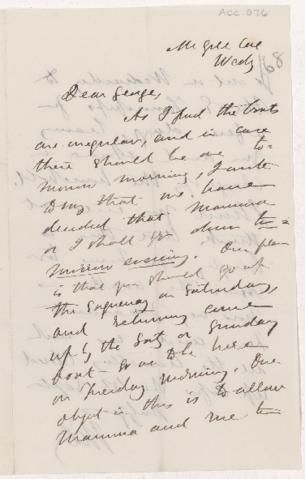 ACC.076
Wedy
Dear George,
As I find the boats
are irregular, and in case
there should be one to-
morrow morning, I write
to say that we have
decided that Mamma
or I shall go down to=
morrow evening. Our plan
is that you should go up
the Saguenay on Saturday,
and returning come
up by the Saty or Sunday
boat so as to be here
on Tuesday morning. One
object in this is to allow
Mamma and me to